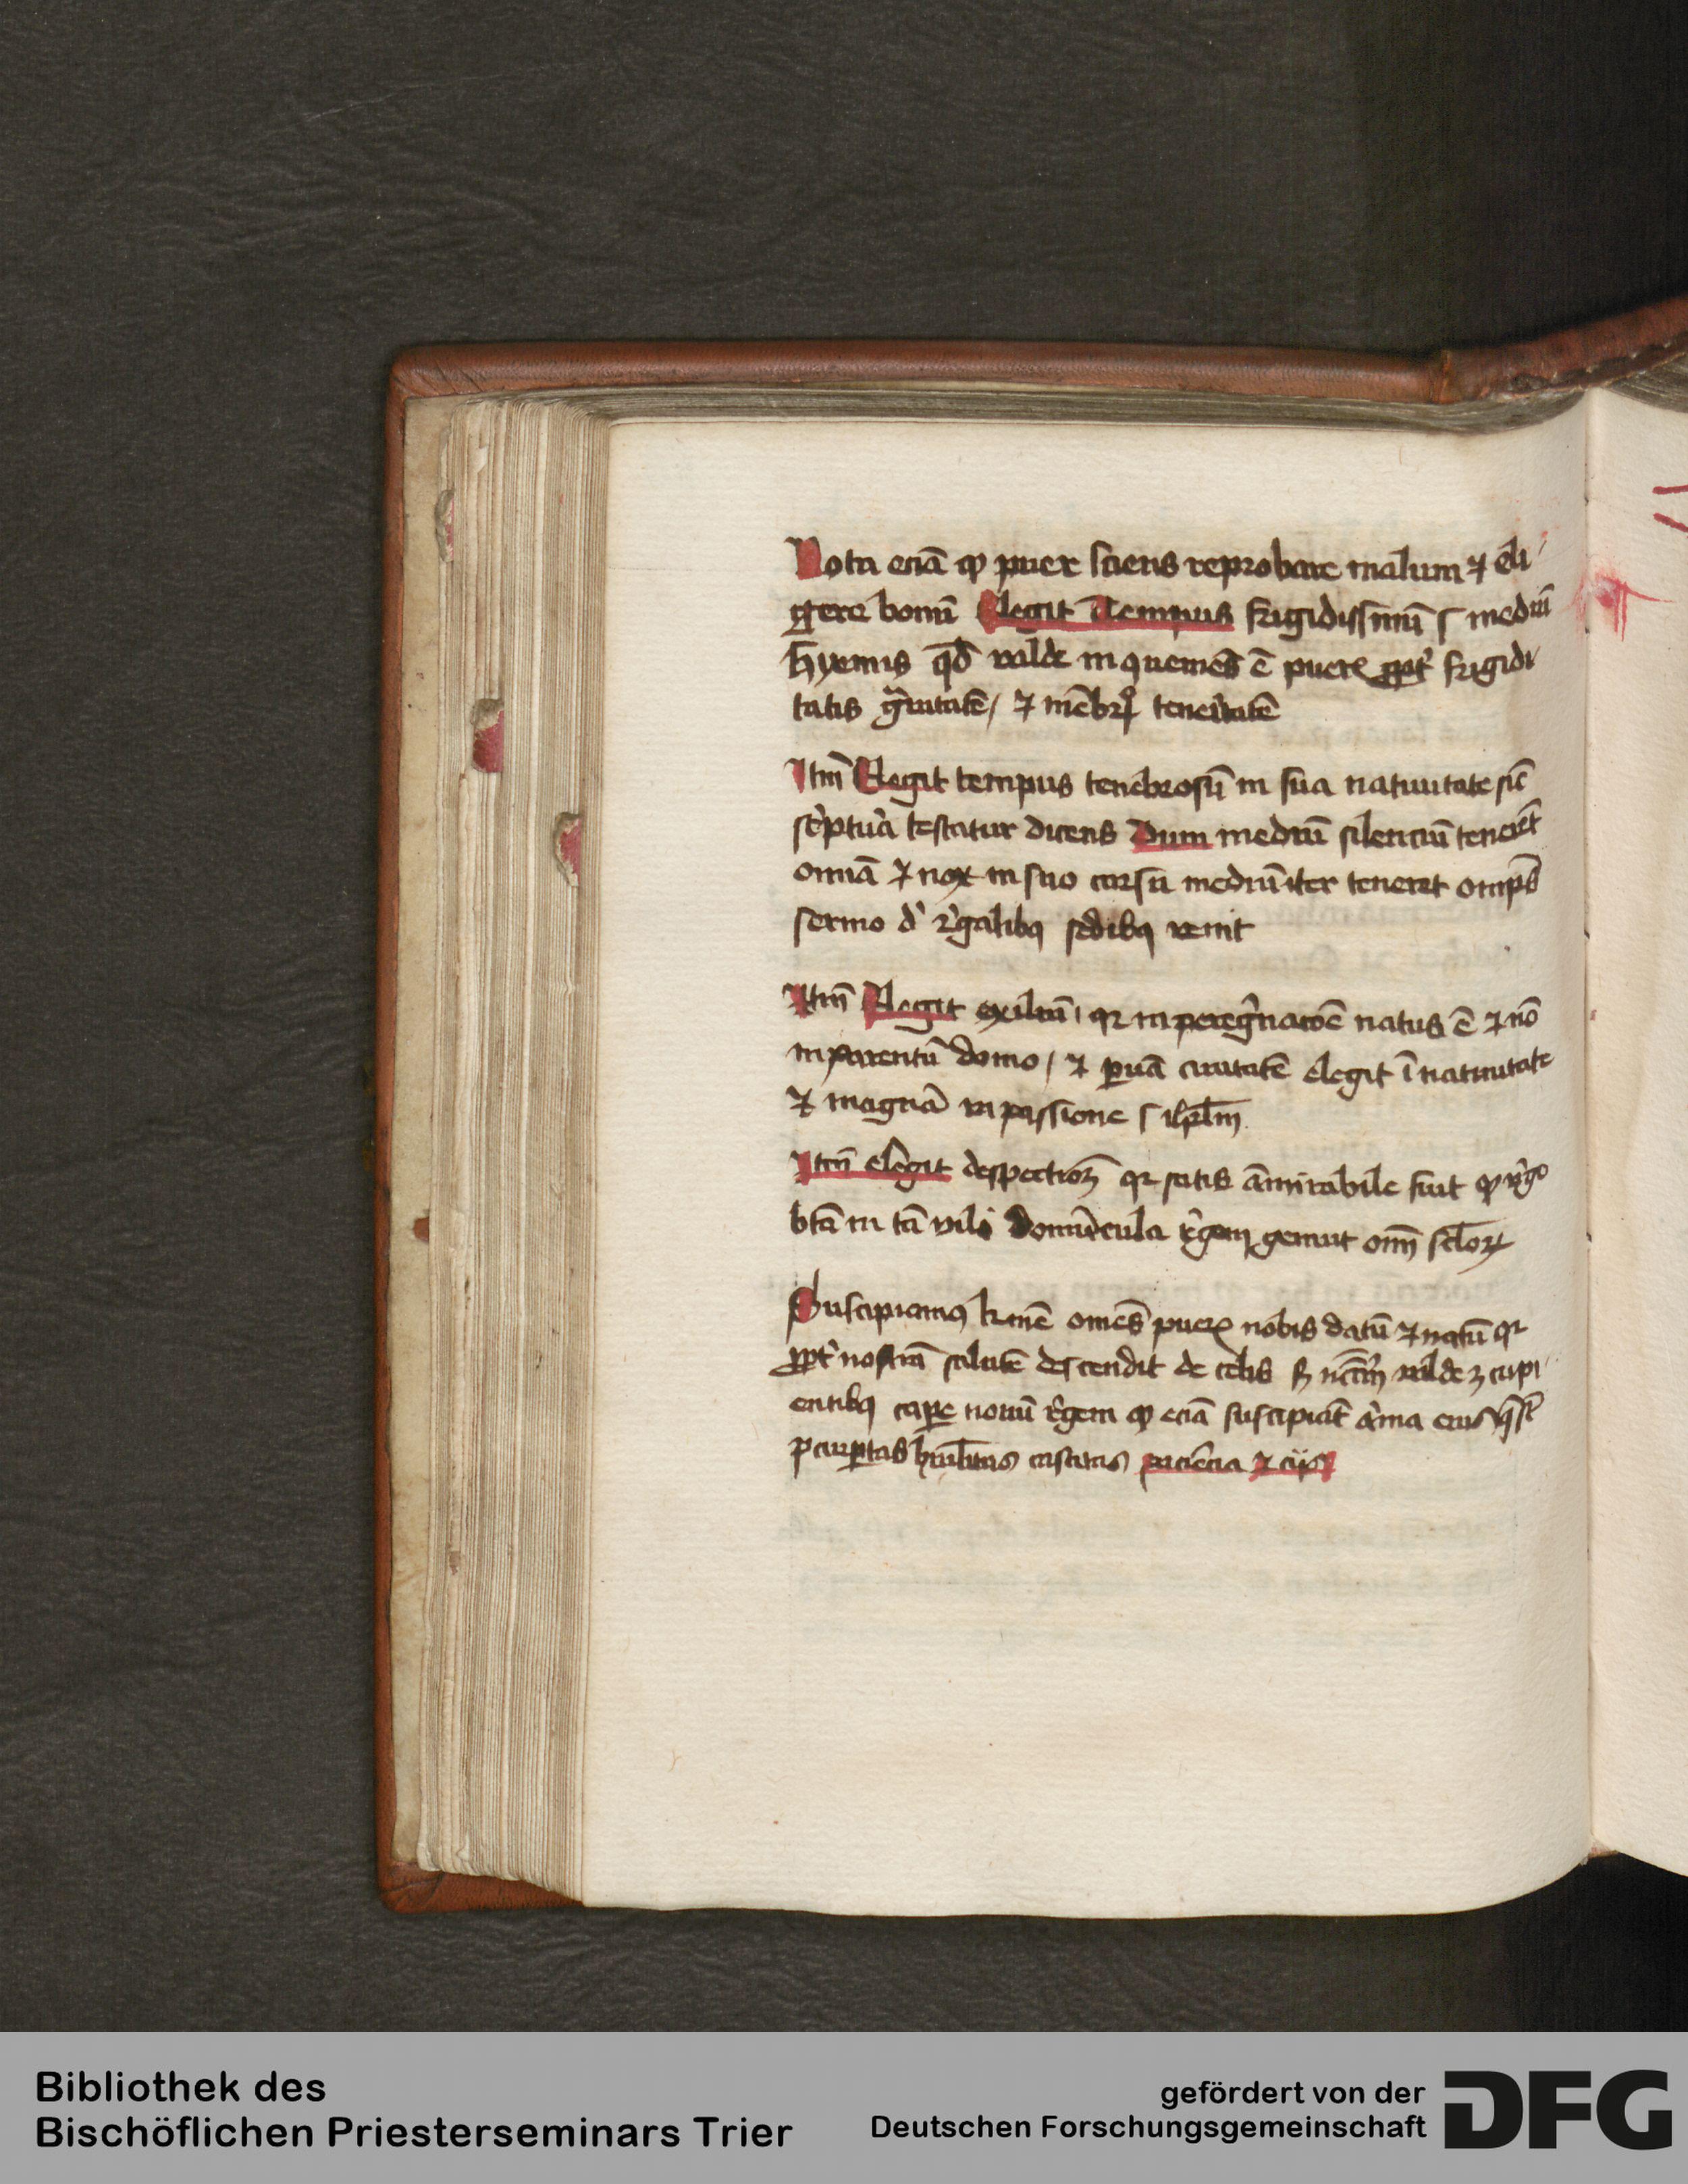 Nota eciā ꝙ puer sciens reprobare malum ⁊ eli
gere bonū Elegit Tempus frigidissimū ſ mediū
hyemis qd̄ valde inquiemēs ē puerꝭ ꝓpt᷑ frigidi
tatis gͣuitatē / ⁊ mēbrꝝ teneritatē
Itm̄ Elegit tempus tenebrosū in sua natiuitate sic̄
sc͛ptura testatur dicens Dum mediū silenciū teneret̄
omnia ⁊ nox in suo cursu mediū iter teneret omp̄s
sermo d͛ r͛galibꝫ sedibꝫ venit
Itm̄ Elegit exiliū / qꝛ in peregͥnacōe natus ē ⁊ nō
in parentū domo / ⁊ ꝑuā ciuitatē elegit ī natiuitate
⁊ magnā in passione ſ ihrl̄m
Itm̄ elegit despectioꝫ qꝛ satis āmirabile fuit ꝙ v͛go
btā in tā vili domūcula r͛gem genuit oīm scl̄oꝝ
Suscipiamꝰ omēs puerꝭ nobis datū ⁊ natū qꝛ
ꝓpt᷑ nostrā salutē descendit de celis valde cupi
entibꝫ cape nouū r͛gem ꝙ eciā suscipiāt arma eius
paup̱tas hūilitas castitas paciēcia ⁊ cꝫ
Bibliothek des
Bischöflichen Priesterseminars Trier
gefördert von der
Deutschen Forschungsgemeinschaft
DFG